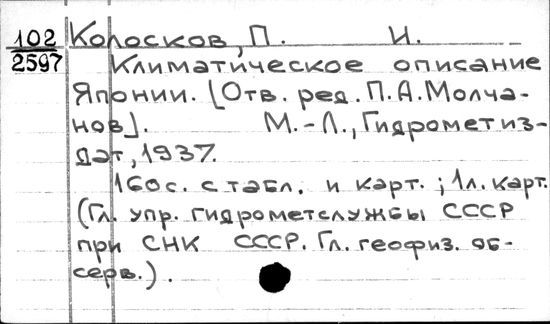 102
2597
Колосков, П. И.
Климатическое описание
Японии. [Отв. ред. П.А.Молча-
нов]. М.-Л., Гидрометиз-
дат, 1937.
160с. с табл. и карт.; 1л. карт.
(Гл. упр. гидрометслужбы СССР
при СНК СССР. Гл. геофиз. об-
серв.).